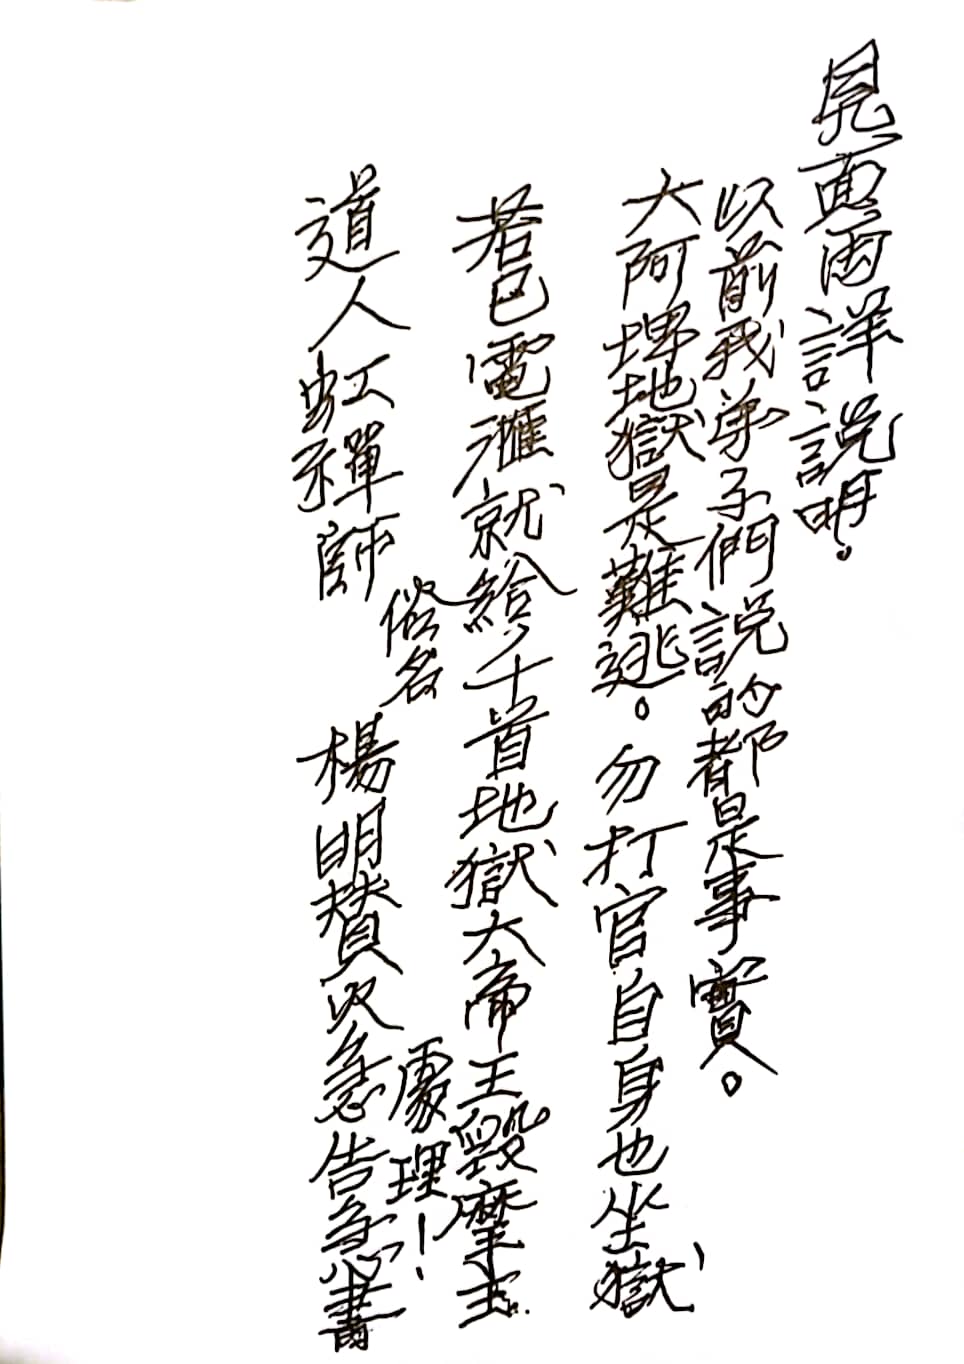 見面再詳說明。
以前我弟子們說的都是事實。
大阿埋地獄是難逃。勿打官自身也坐獄
若已電滙就給千首地獄大帝王毀摩主
處理！
道人虹禪師 俗名 楊明贊次急告急書